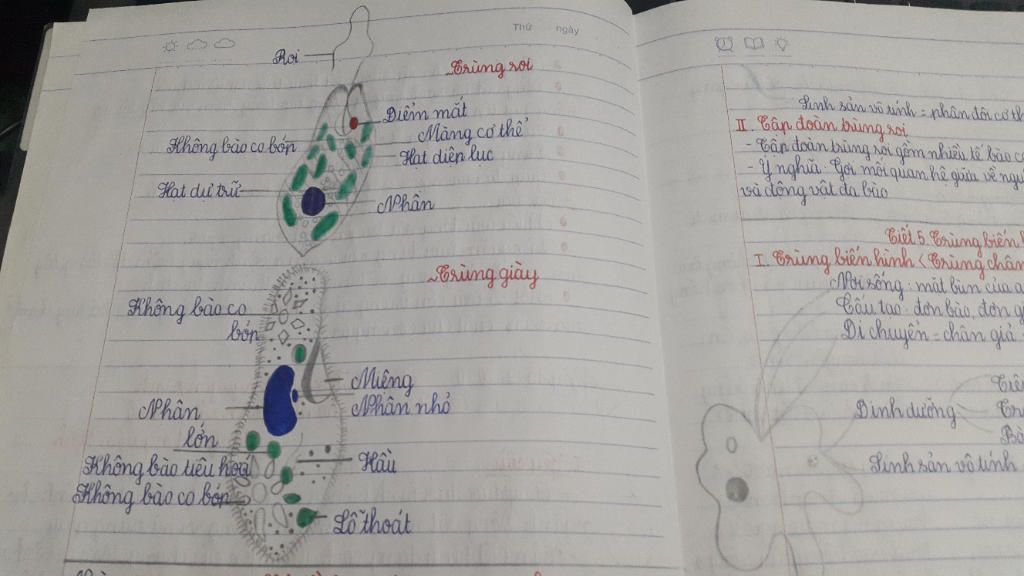 Thứ ngày
Roi
Trùng roi
Điểm mắt
Màng cơ thể
Không bào co bóp
Hạt diệp lục
Hạt dự trữ
Nhân
Trùng giày
Không bào co
bóp
Miệng
Nhân
Nhân nhỏ
lớn
Không bào tiêu hoá
Hầu
Không bào co bóp
Lỗ thoát
Sinh sản vô tính = phân đôi cơ th
II. Tập đoàn trùng roi
- Tập đoàn trùng roi gồm nhiều tế bào c
- Ý nghĩa: Gợi mối quan hệ giữa về ng
và động vật đa bào
Tiết 5. Trùng biến h
I. Trùng biến hình (Trùng chân
Nơi sống: mặt bùn của a
Cấu tạo: đơn bào, đơn g
Di chuyển = chân giả
Tiê
Dinh dưỡng
Tr
Bà
Sinh sản vô tính